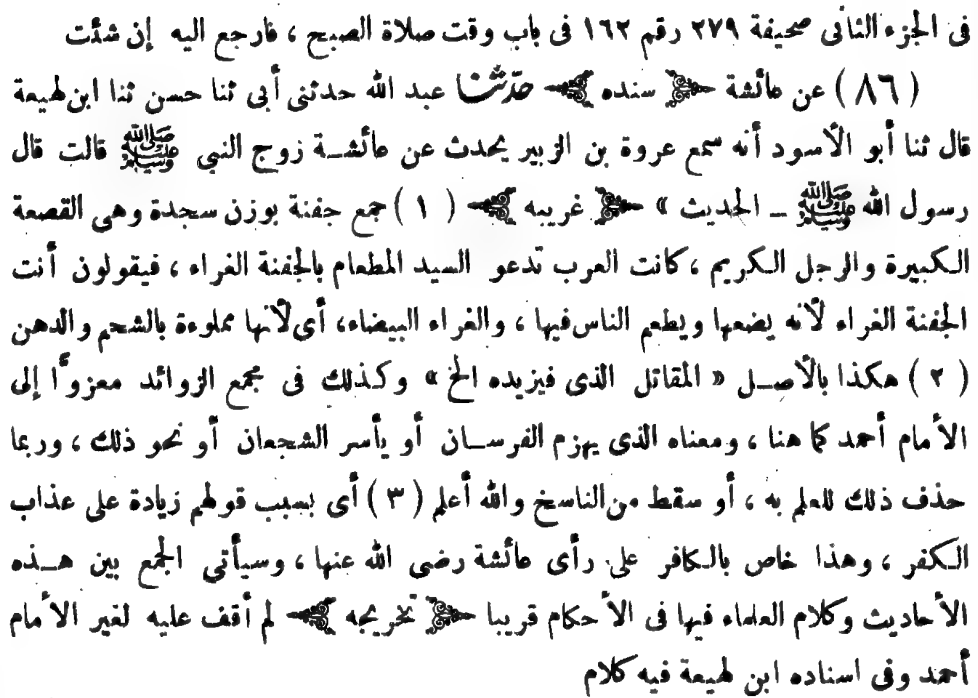 فى الجزء الثانى صحيفة ٢٧٩ رقم ١٦٢ فى باب وقت صلاة الصبح ، فارجع اليه إن شئت
( ٨٦ ) عن عائشة ﴿ سنده ﴾ حدّثنا عبد الله حدثنى أبى ثنا حسن ثنا ابن لهيعة
قال ثنا أبو الأسود أنه سمع عروة بن الزبير يحدث عن عائشـة زوج النبى ﷺ قالت قال
رسول الله ﷺ ـ الحديث » ﴿ غريبه ﴾ ( ١ ) جمع جفنة بوزن سجدة وهى القصعة
الكبيرة والرجل الكريم ، كانت العرب تدعو السيد المطعام بالجفنة الغراء ، فيقولون أنت
الجفنة الغراء لأنه يضعها ويطعم الناس فيها ، والغراء البيضاء، أى لأنها مملوءة بالشحم والدهن
( ٢ ) هكذا بالأصـل « المقاتل الذى فيزيده الخ » وكذلك فى مجمع الزوائد معزوًا إلى
الأمام أحمد كما هنا ، ومعناه الذى يهزم الفرسـان أو يأسر الشجعان أو نحو ذلك ، وربما
حذف ذلك للعلم به ، أو سقط من الناسخ والله أعلم ( ٣ ) أى بسبب قولهم زيادة على عذاب
الكفر ، وهذا خاص بالكافر على رأى عائشة رضى الله عنها ، وسيأتى الجمع بين هـذه
الأحاديث وكلام العلماء فيها فى الأحكام قريبا ﴿ تخريجه ﴾ لم أقف عليه لغير الأمام
أحمد وفى اسناده ابن لهيعة فيه كلام